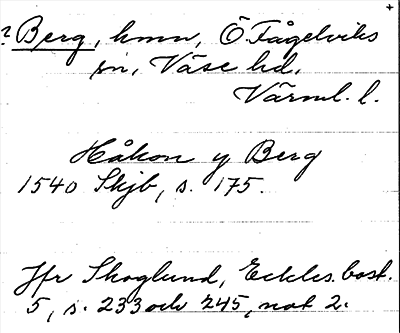 ? Berg, hmn, Ö Fågelviks
sn, Väse hd,
Värml. l.
Håkon y Berg
1540 Skjb, s. 175.
Jfr Skoglund, Eckles. bost.
5, s. 233 och 245, not 2.